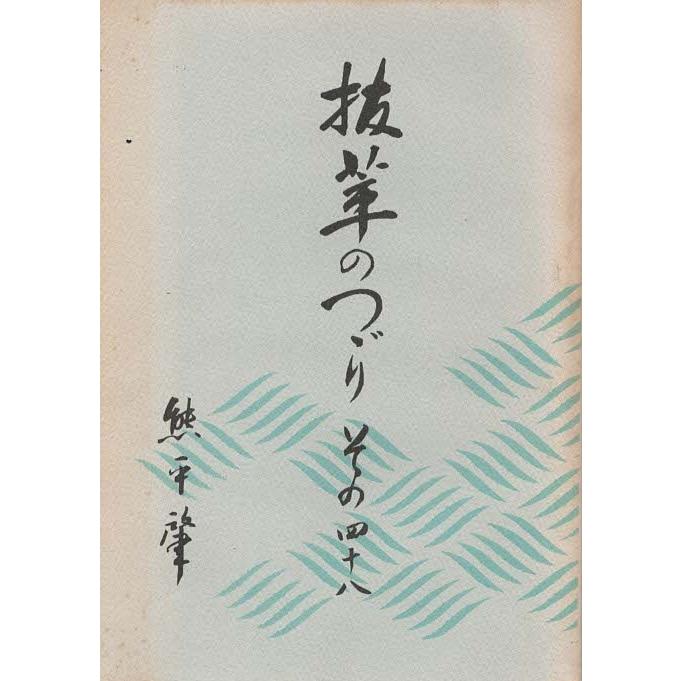 抜萃のつゞり その四十八
熊平肇